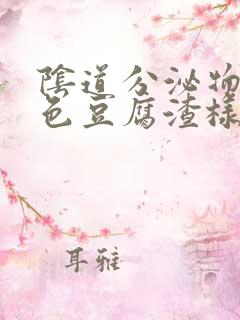 陰道分泌物
色豆腐渣樣
耳雅